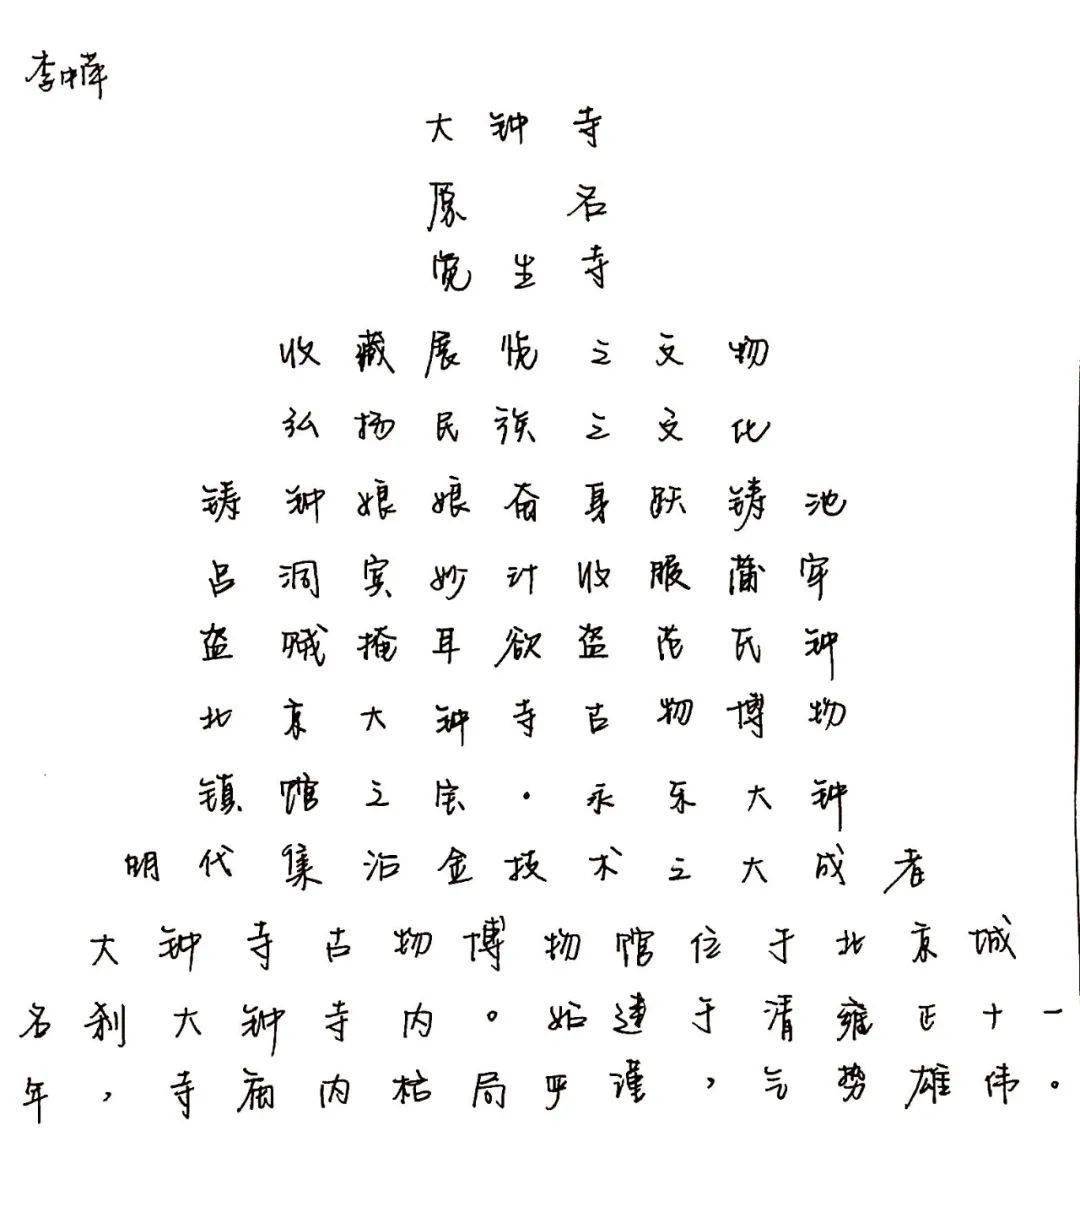 李中萍
大钟寺
原名
觉生寺
收藏展览之文物
弘扬民族之文化
铸钟娘娘奋身跃铸池
吕洞宾妙计收服蒲牢
盗贼掩耳欲盗范氏钟
北京大钟寺古物博物
镇馆之宝·永乐大钟
明代集冶金技术之大成者
大钟寺古物博物馆位于北京城
名刹大钟寺内。始建于清雍正十一
年,寺庙内格局严谨,气势雄伟。